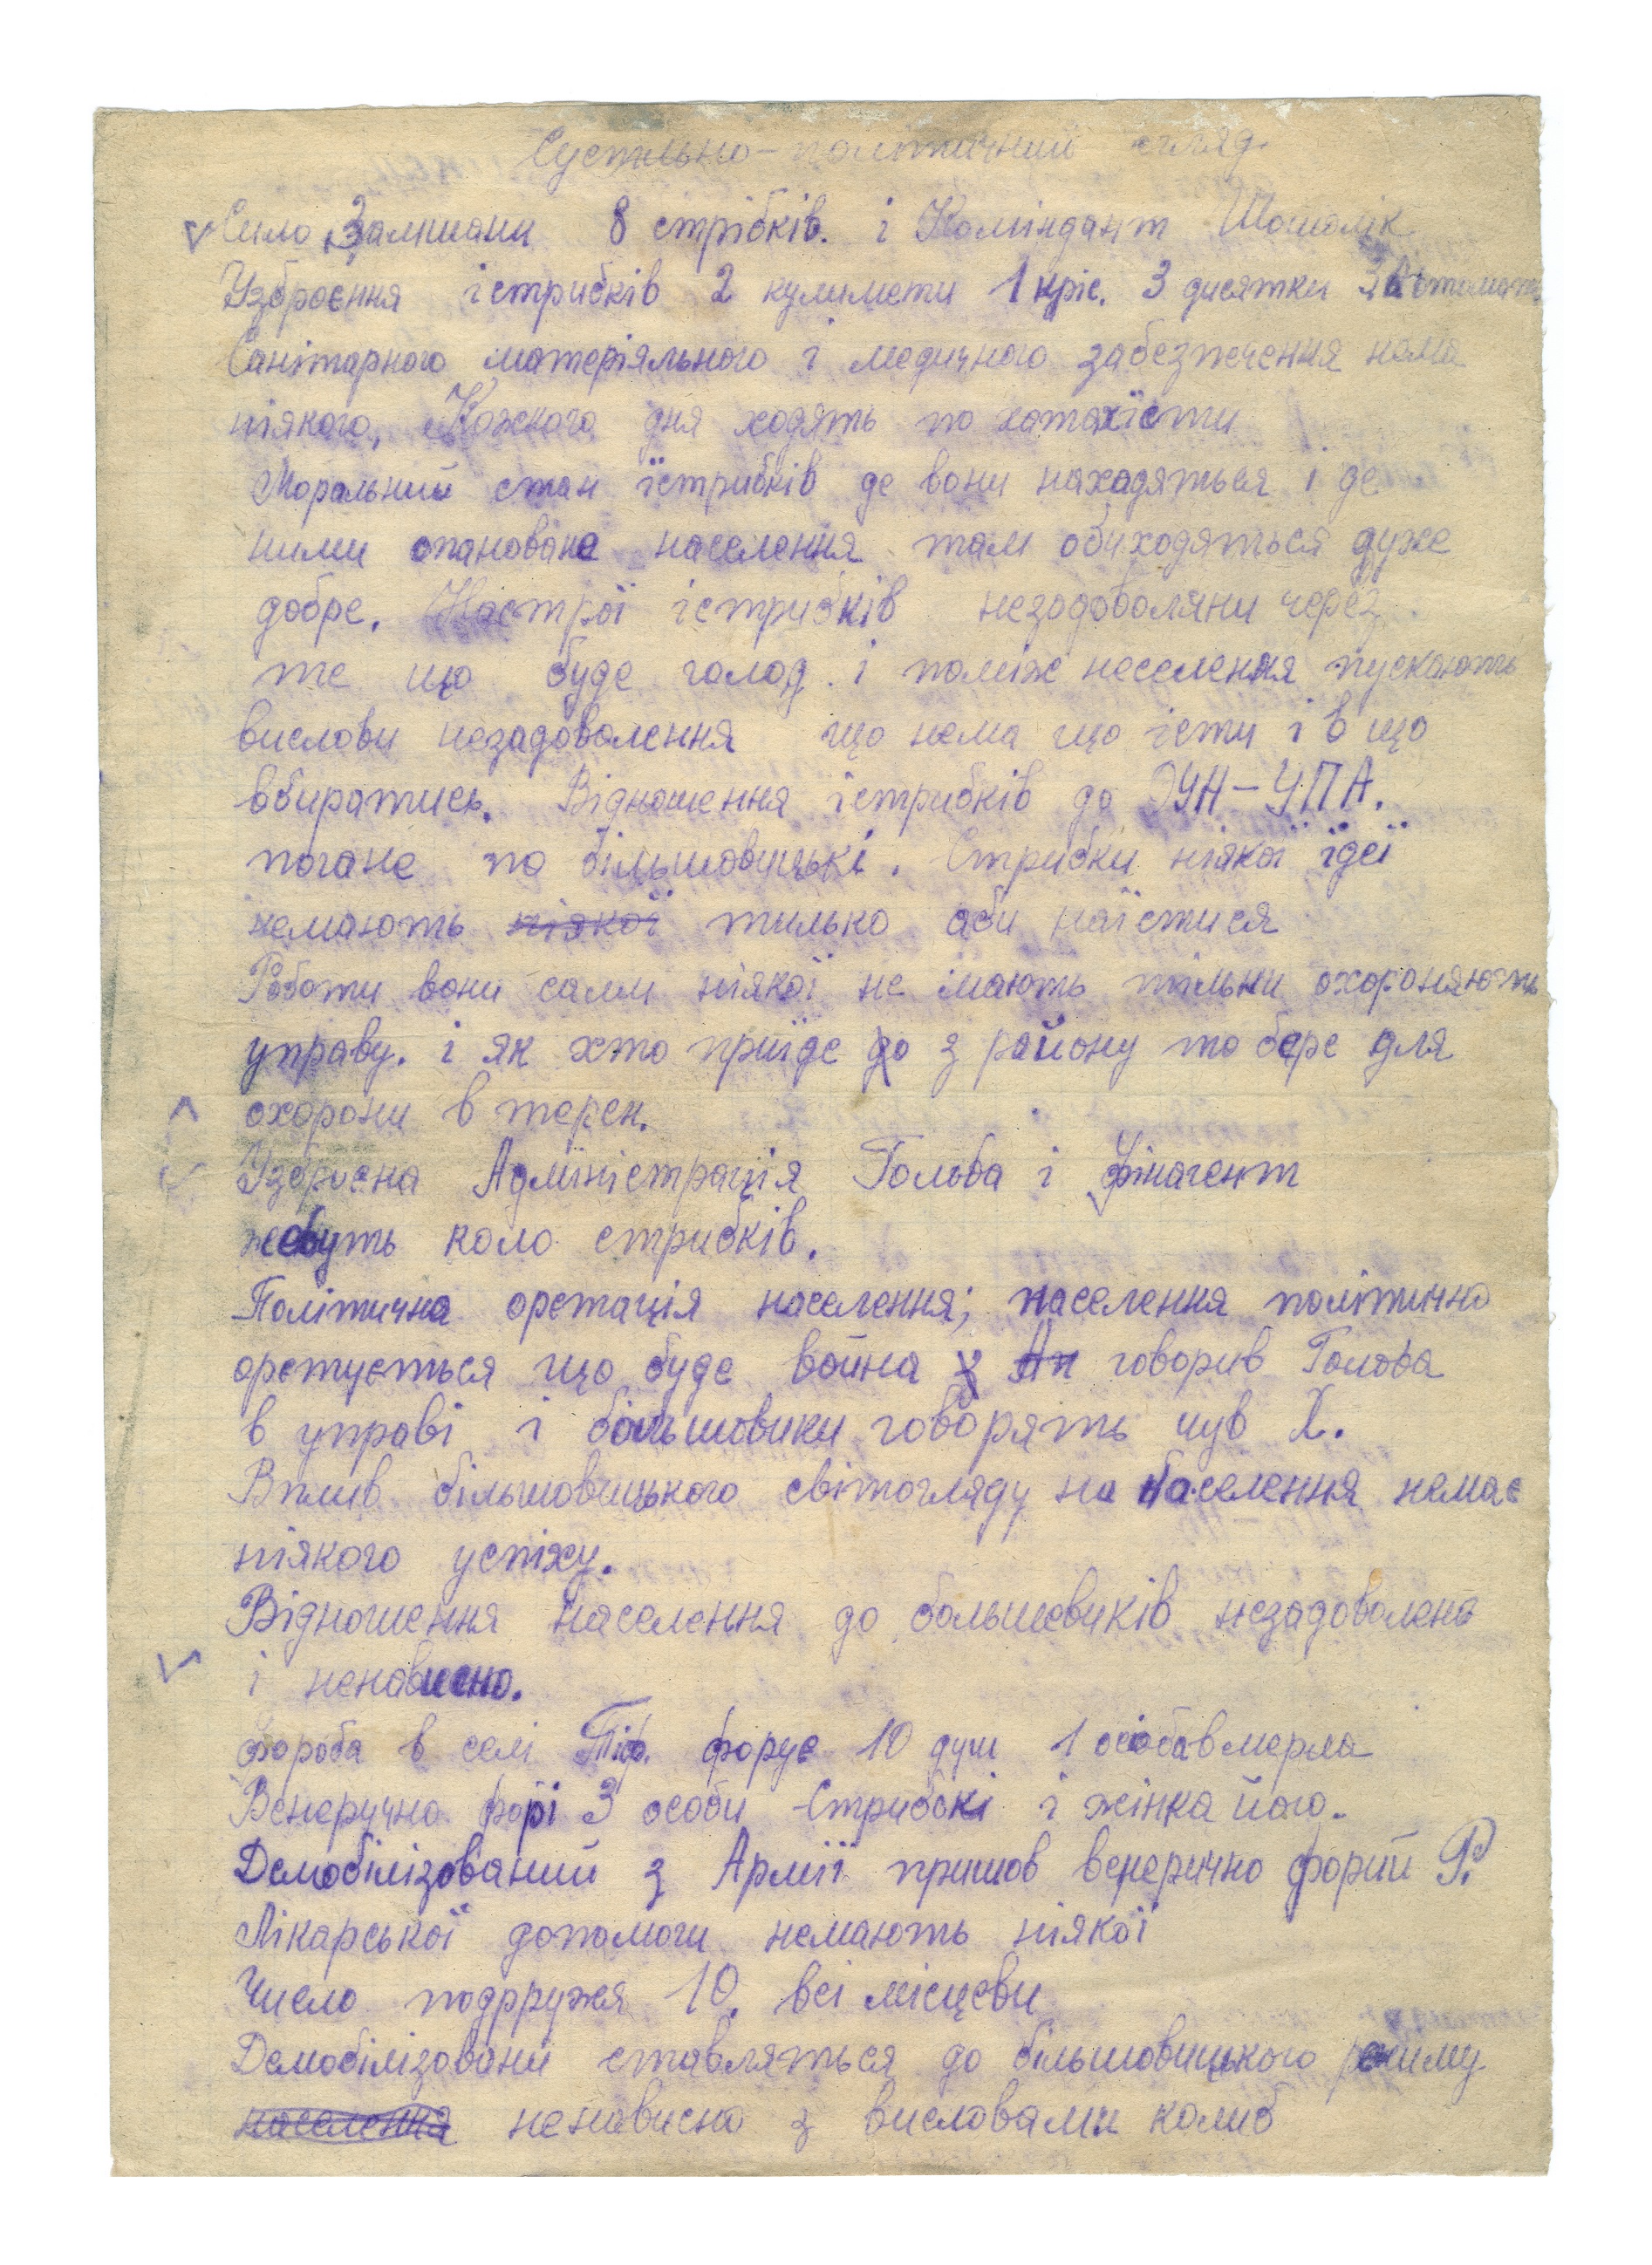 Суспільно-політичний огляд.
Село Залишани 8 стрібків. і Коміндант Шошолік
Узброєння істрибків 2 кулимети 1 кріс. 3 дисятки 3 Автомати
Санітарного матеріяльного і медичного забезпечення нема
ніякого, Кожного дня ходять по хатах їсти
Моральний стан їстрибків де вони находяться і де
ними опановане населення там обиходяться дуже
добре. Настрої істрибків незадоволяни через
те що буде голод. і поміж неселення пускають
вислови незадоволення що нема що їсти і в що
вбиратись. Відношення істрибків до ОУН-УПА.
погане по більшовицькі. Стрибки ніякої їдеї
немають ніякої тилько аби наїстися
Роботи вони сами ніякої не мають тільки охороняють
управу. і як хто приїде до з району то бере для
охорони в терен.
Узброєна Адміністрація Гольба і фінагент
живуть коло стрибків.
Політична орєтація населення; населення політично
орєтується що буде война у Ан говорив Голова
в управі і більшовики говорять чув Х.
Вплив більшовицького світогляду на населення немає
ніякого успіху.
Відношення населення до большевиків незадоволено
і ненависно.
фороба в селі Тіф. форує 10 душ 1 особа вмерла
Венеручно форі 3 особи Стрибокі і жінка його.
Демобілізований з Армії пришов венерично форий Р.
Лікарської допомоги немають ніякої
Число подрружя 10. всі місцеви
Демобілізовані ставляться до більшовицького режиму
населення ненависно з висловами колиб